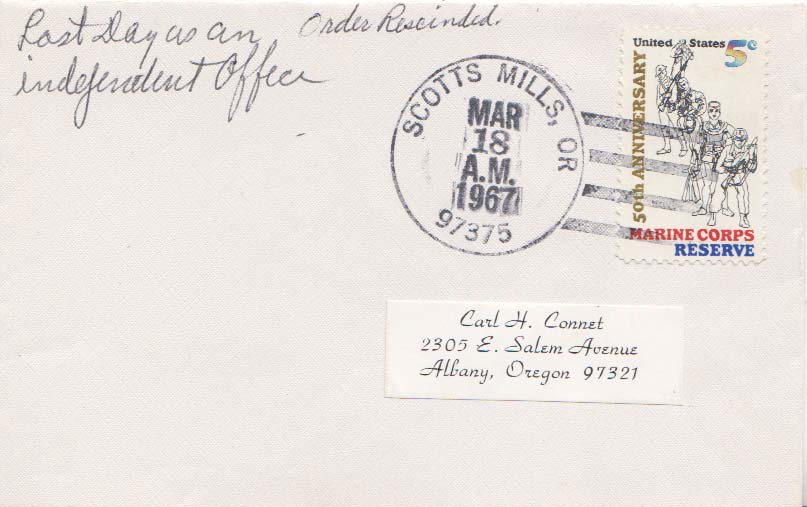 Last Day as an Order Rescinded.
independent Office
United States 5c
50th ANNIVERSARY
MARINE CORPS
RESERVE
SCOTTS MILLS, OR
MAR
18
A.M.
1967
97375
Carl H. Connet
2305 E. Salem Avenue
Albany, Oregon 97321